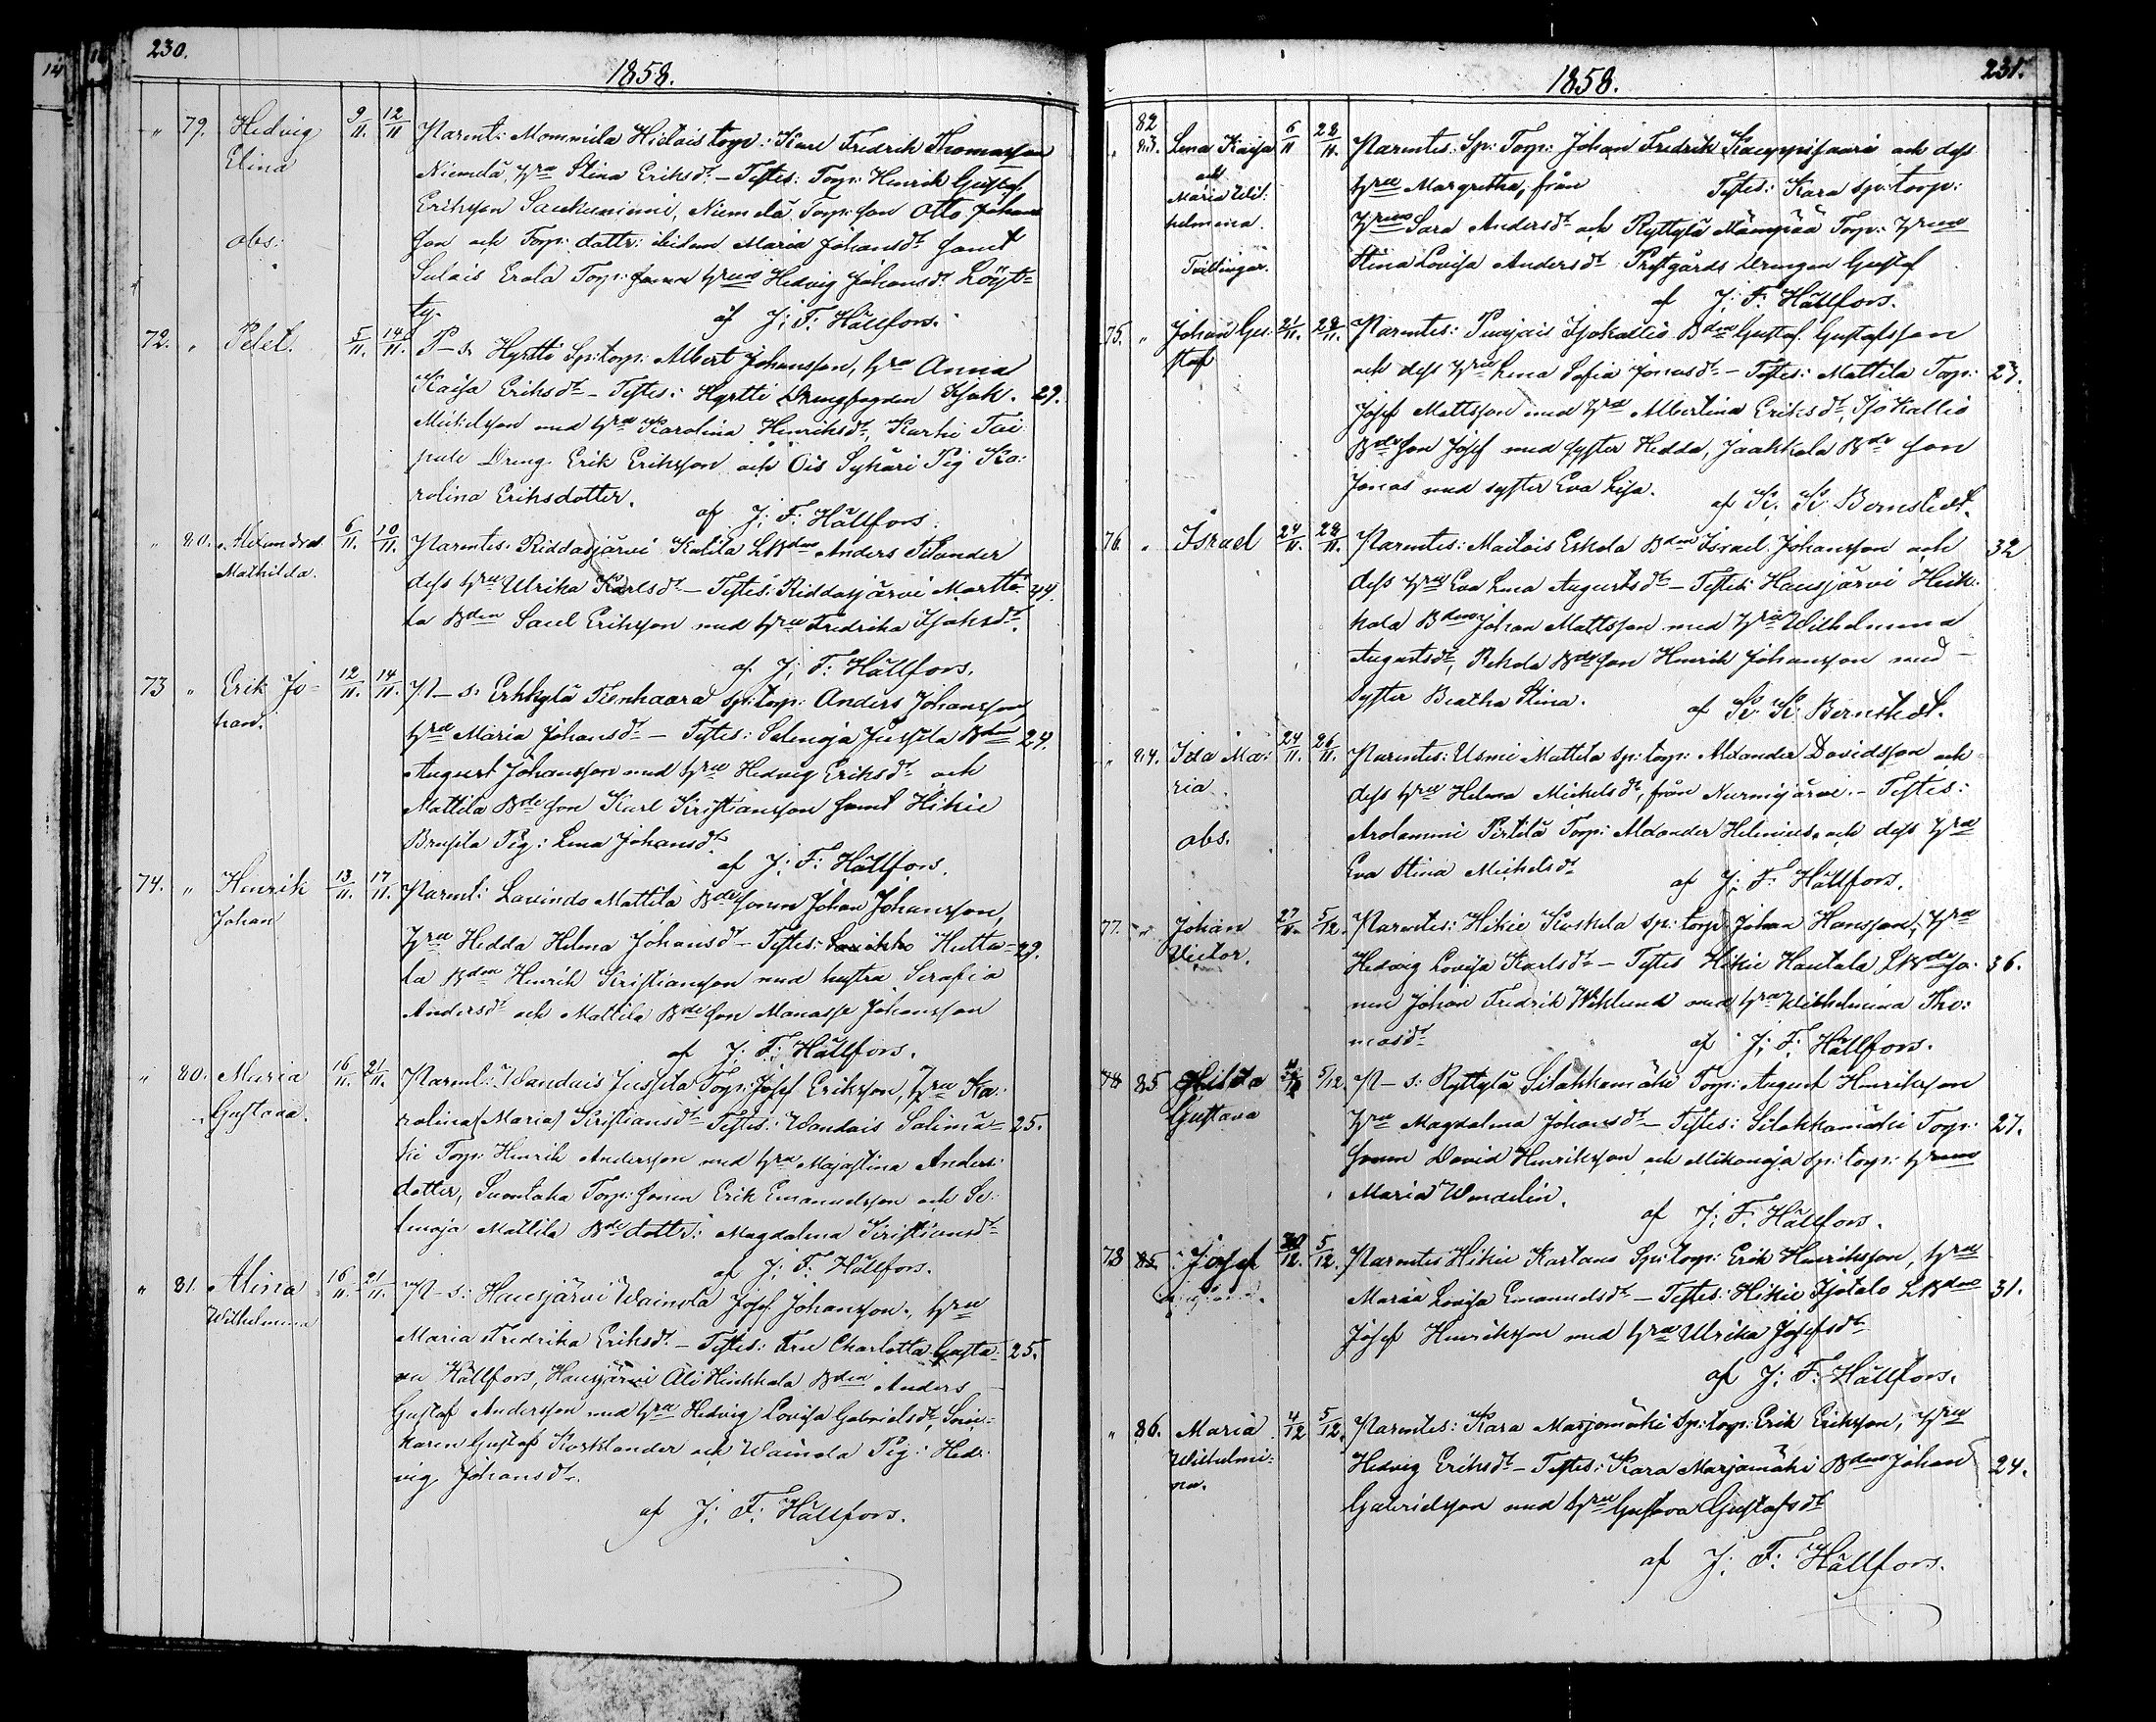 230.
1858.
" 79. Hedvig 9/11. 12/11 Parent: Mommila Hietois torp: Karl Fredrik Thomasson
Elina Niemelä, hru Stina Eriksdt. - Testes: Torp: Henrik Gustaf
Eriksson Saukuniemi, Niemelä Torp: son Otto Johans
obs: son och Torp: dottr: ibidem Maria Johansdt samt
Sulais Erola Torp: hruns Hedvig Johansdt Löyt=
ty.
af J: F: Hällfors.
72. " Petet. 5/11. 14/11. P-s. Hyrtti Sp:torp: Albert Johansson, hru Anna
Kaisa Eriksdt - Testes: Hyrtti Drengfogden Isak. 29.
Mickelsson med hru Karolina Henriksdt, Kurki Tai
pale Dreng. Erik Eriksson och Ois Sykäri Pig Ka:
rolina Eriksdotter.
af J: F: Hällfors.
" 80. Alexandra 6/11. 10/11. Parentes: Riddasjärvi Kalila LBdn Anders Silander
Mathilda. dess hru Ulrika Karlsdt - Testes: Riddasjärvi Martti 44.
la Bden Saul Eriksson med hru Fredrika Isaksdt.
af J: F: Hällfors.
73 " Erik Jo= 12/11. 14/11. P-s. Erkkylä Tienhaara sp:torp: Anders Johansson,
han. hru Maria Johansdt - Testes: Selenoja Jussila Bden 24.
August Johansson med hru Hedvig Eriksdt och
Mattila Bde son Karl Kristiansson samt Hikie
Brusila Pig: Lena Johansdt.
af J: F: Hällfors.
74. " Henrik 13/11. 17/11. Parent: Lavindo Mattila Bde sonen Johan Johansson,
Johan hru Hedda Helena Johansdt - Testes: Hutta= 29.
la Bden Henrik Kristiansson med hustru Serafia
Andersdt och Mattila Bde son Manasse Johansson
af J: F: Hällfors.
" 80. Maria 16/11. 21/11. Parent: Wandais Jussila Torp: Josef Eriksson, hru Ka:
Gustava. rolina (Maria) Kristiansdt Testes: Wandais Salimä= 25.
ki Torp: Henrik Andersson med hru Majastina Anders:
dotter, Suontaka Torp: sonen Erik Emanuelsson och Se:
lenoja Mattila Bde dottr: Magdalena Kristiansdt
af J: F: Hällfors.
" 81. Alina 16/11. 21/11. P-s: Hausjärvi Wainola Josef Johansson, hru
Wilhelmina Maria Fredrika Eriksdt - Testes: Fru Charlotta Gusta: 25.
va Hällfors, Hausjärvi Ali Heikkala Bden Anders
Gustaf Andersson med hru Hedvig Lovisa Gabrielsdt,
karen Gustaf Korslander och Wainola Pig: Hed:
vig Johansdt.
af J: F: Hällfors.
1858.
231.
" 82 83. Lena Kaisa 6/11 28/11. Parentes: Sp: Torp: Johan Fredrik Kauppisaari och dess
och hru Margretha, från Testes: Kara sp:torp:
Maria Wil: hruns Sara Andersdt och Ryttylä Mäenpää Torp: hruns
helmina. Stina Lovisa Andersdt Prestgårds Drengen Gustaf
Tvillingar. af J: F: Hällfors.
75. " Johan Gu: 21/11. 28/11. Parentes: Puujais Isokallio Bden Gustaf Gustafsson
staf och dess hru Lena Sofia Jonasdt - Testes: Mattila Torp: 23.
Josef Mattsson med hru Albertina Eriksdt, Isokallio
Bde son Josef med syster Hedda, Jaakkola Bde son
Jonas med syster Eva Lisa.
af K: K: Bernstedt.
76. " Israel 24/11. 28/11. Parentes: Maitois Eskola Bden Israel Johansson och 32
dess hru Eva Lena Augustsdt - Testes: Hausjärvi Heik:
kola Bden Johan Mattsson med hru Wilhelmina
Augustsdt, Rekola Bde son Henrik Johansson med
syster Beatha Stina.
af K: K: Bernstedt.
" 84. Ida Ma: 24/11. 26/11. Parentes: Usmi Mattila sp: torp: Alexander Davidsson och
ria. dess hru Helena Mickelsdt, från Nurmijärvi. - Testes:
Arolammi Pirtilä Torp: Alexander Helenius och dess hru
obs. Eva Stina Mickelsdt
af J: F: Hällfors.
77. " Johan 27/11. 5/12. Parentes: Hikie Koskela sp: torp: Johan Hansson, hru
Victor. Hedvig Lovisa Karlsdt - Testes Hikie Hautala LBde so: 36.
nen Johan Fredrik Wiklund med hru Wilhelmina Tho:
masdt
af J: F: Hällfors.
78 85 Hilda 5/12 P-s: Ryttylä Silakkamäki Torp: August Henriksson
Gustava hru Magdalena Johansdt - Testes: Silakkamäki Torp: 27.
sonen David Henriksson och Mikonoja sp: torp: hruns
Maria Wendelin.
af J: F: Hällfors.
78 85. Josef 5/12. Parentes Hikie Kartano Sp:torp: Erik Henriksson, hru
Maria Lovisa Emanuelsdt - Testes: Hikie Isotalo LBden 31.
Josef Henriksson med hru Ulrika Josefsdt
af J: F: Hällfors.
" 86. Maria 4/12 5/12. Parentes: Kara Marjomäki Sp:torp: Erik Eriksson, hru
Wilhelmi: Hedvig Eriksdt - Testes: Kara Marjamäki Bden Johan 24.
na. Gabrielsson med hru Gustava Gustafsdt
af J: F: Hällfors.